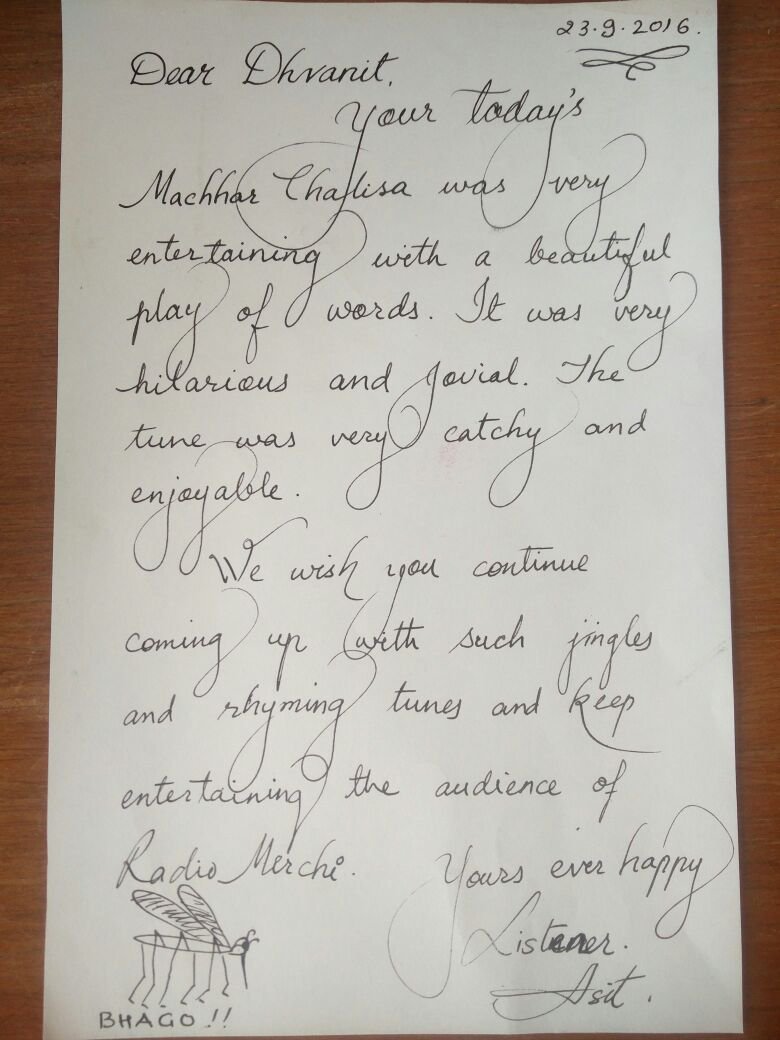 23.9.2016.
Dear Dhvanit,
Your today's
Machhar Chalisa was very
entertaining with a beautiful
play of words. It was very
hilarious and jovial. The
tune was very catchy and
enjoyable.
We wish you continue
coming up with such jingles
and rhyming tunes and keep
entertaining the audience of
Radio Mirchi. Yours ever happy
Listener.
Asit.
BHAGO!!